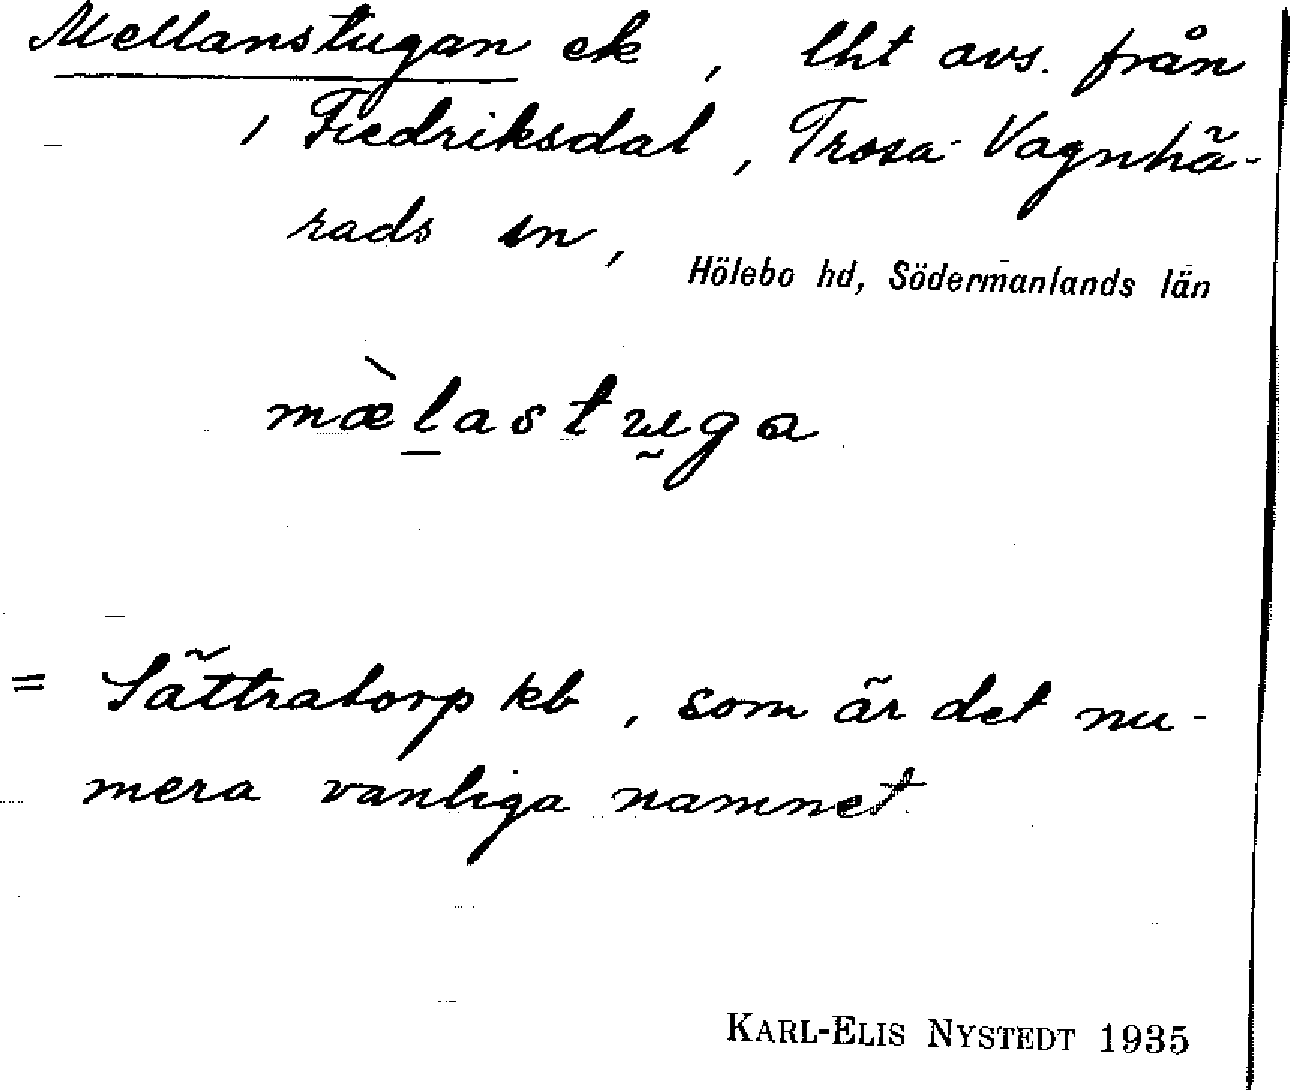 Mellanstugan ek, lht avs. från
, Fredriksdal, Trosa-Vagnhä-
rads sn,
Hölebo hd, Södermanlands län
mæ̀l̠astṵga
= Sättratorp kb, som är det nu-
mera vanliga namnet.
KARL-ELIS NYSTEDT 1935